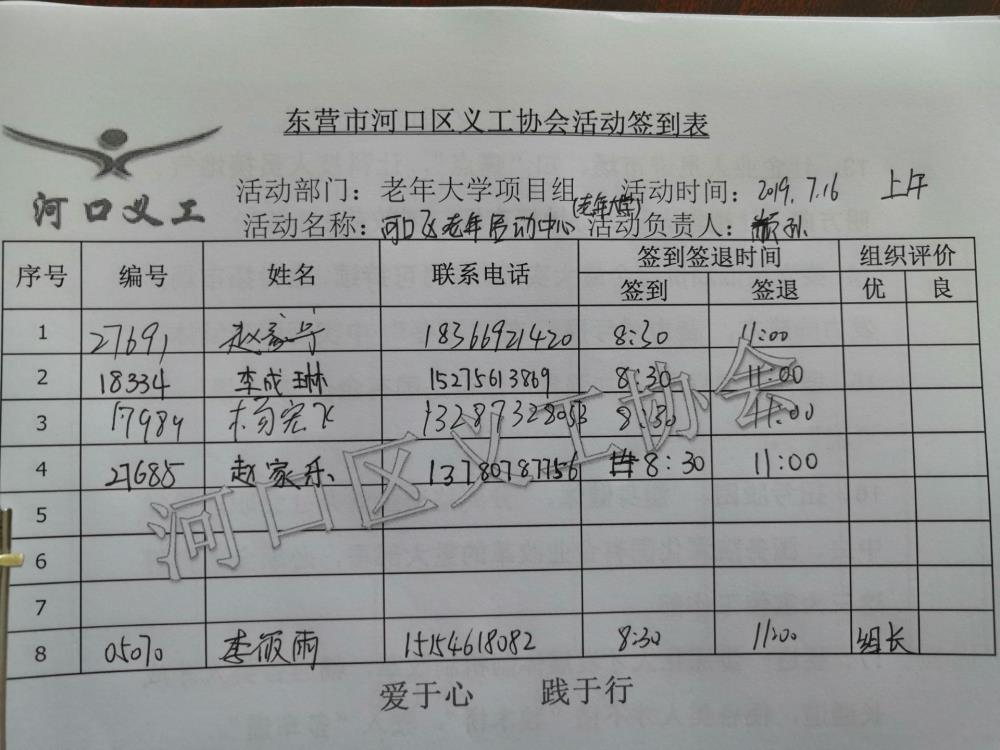 东营市河口区义工协会活动签到表
河口义工
活动部门：老年大学项目组 活动时间：2019.7.16 上午
活动名称：河口区老年活动中心(老年大学) 活动负责人：
序号 编号 姓名 联系电话 签到签退时间 组织评价
签到 签退 优 良
1 27691 赵家宁 18366921420 8:30 11:00
2 18334 李成琳 15275613869 8:30 11:00
3 17984 杨宏飞 13287328053 8:30 11:00
4 27685 赵家乐 13780787756 8:30 11:00
5
6
7
8 05070 李筱雨 15154618082 8:30 11:00 组长
爱于心 践于行
河口区义工协会